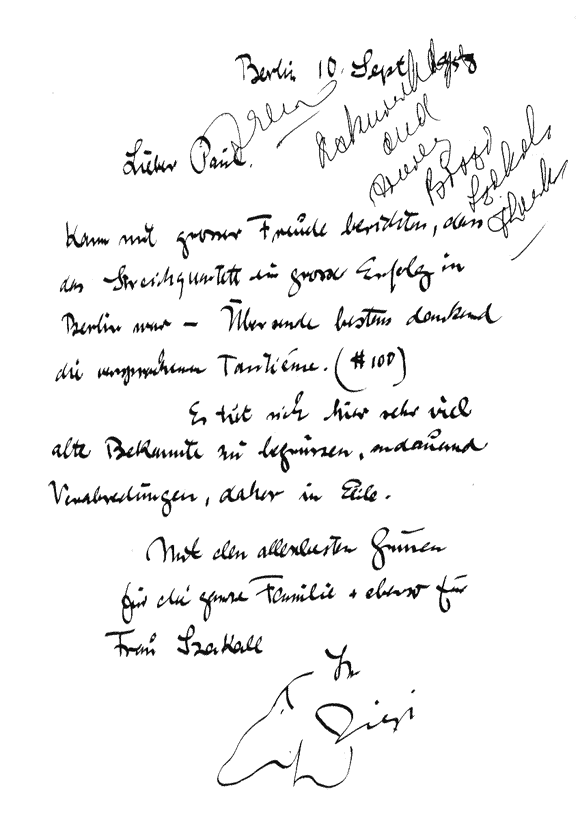 Berlin 10. Sept
Acknowledge
and
Lieber Paul.
Szakall
Thanks
Kann mit grosser Freude berichten, dass
das Streichquartett ein grosser Erfolg in
Berlin war – Übersende bestens dankend
die versprochenen Tantième. (#100)
Es tut sich hier sehr viel
alte Bekannte zu begrüssen, andauernd
Verabredungen, daher in Eile.
Mit den allerbesten Grüssen
für die ganze Familie + ebenso für
Frau Szakall
Ihr